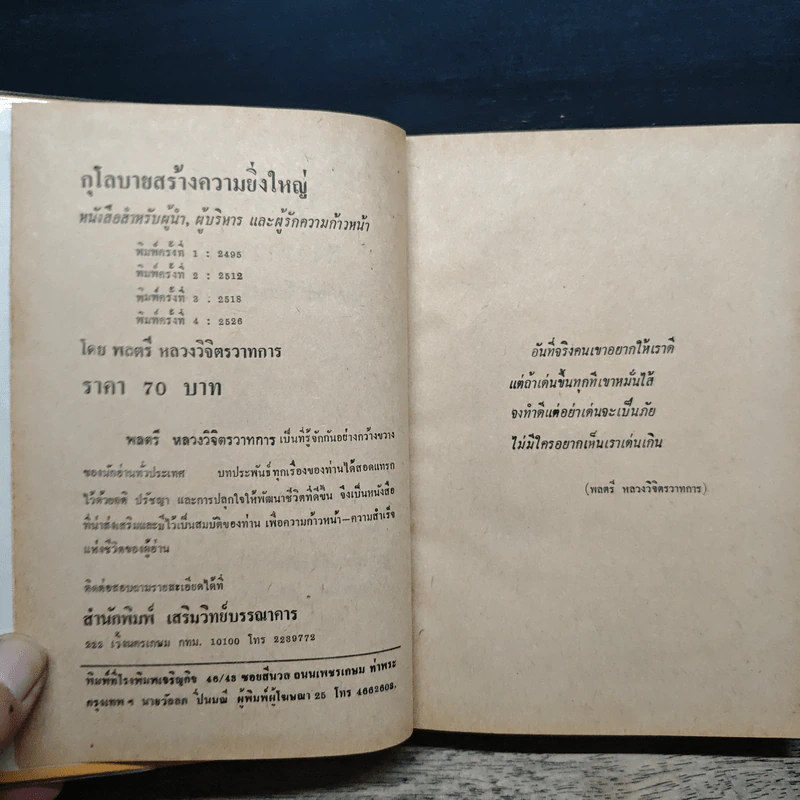 กุโลบายสร้างความยิ่งใหญ่
หนังสือสำหรับผู้นำ, ผู้บริหาร และผู้รักความก้าวหน้า
พิมพ์ครั้งที่ 1 : 2495
พิมพ์ครั้งที่ 2 : 2512
พิมพ์ครั้งที่ 3 : 2518
พิมพ์ครั้งที่ 4 : 2526
โดย พลตรี หลวงวิจิตรวาทการ
ราคา 70 บาท
พลตรี หลวงวิจิตรวาทการ เป็นที่รู้จักกันอย่างกว้างขวาง
ของนักอ่านทั่วประเทศ บทประพันธ์ทุกเรื่องของท่านได้สอดแทรก
ไว้ด้วยคติ ปรัชญา และการปลุกใจให้พัฒนาชีวิตที่ดีขึ้น จึงเป็นหนังสือ
ที่น่าส่งเสริมและมีไว้เป็นสมบัติของท่าน เพื่อความก้าวหน้า—ความสำเร็จ
แห่งชีวิตของผู้อ่าน
ติดต่อสอบถามรายละเอียดได้ที่
สำนักพิมพ์ เสริมวิทย์บรรณาคาร
222 เวิ้งนครเกษม กทม. 10100 โทร 2239772
พิมพ์ที่โรงพิมพ์เจริญกิจ 46/43 ซอยสีนวล ถนนเพชรเกษม ท่าพระ
กรุงเทพฯ นายวัลลภ ปิ่นมณี ผู้พิมพ์ผู้โฆษณา 25 โทร 4662603.
อันที่จริงคนเขาอยากให้เราดี
แต่ถ้าเด่นขึ้นทุกทีเขาหมั่นไส้
จงทำดีแต่อย่าเด่นจะเป็นภัย
ไม่มีใครอยากเห็นเราเด่นเกิน
(พลตรี หลวงวิจิตรวาทการ)